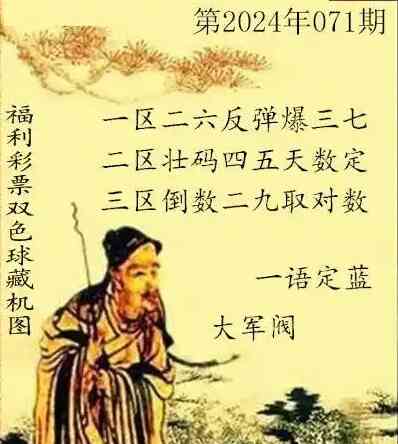 第2024年071期
福利彩票双色球藏机图
一区二六反弹爆三七
二区壮码四五天数定
三区倒数二九取对数
一语定蓝
大军阀